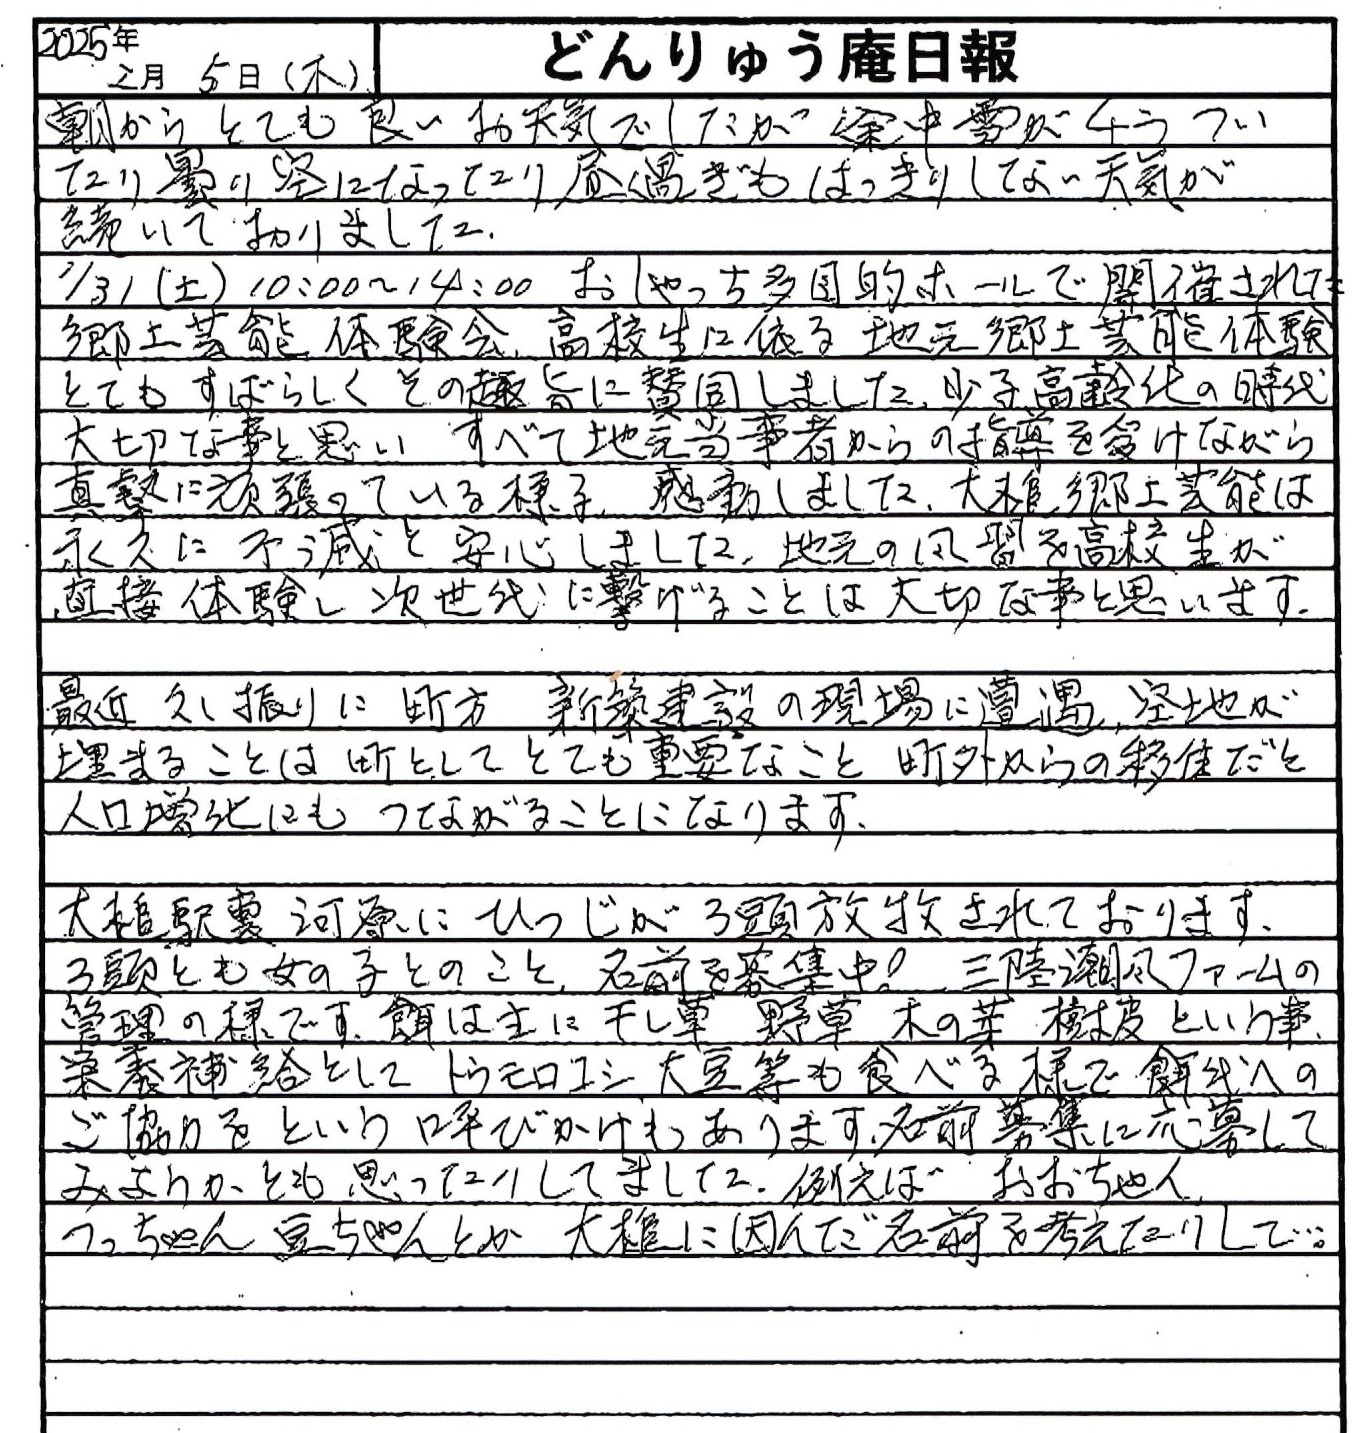 2025年
2月 5日(木)
どんりゅう庵日報
朝からとても良いお天気でしたが 途中雪がちらつい
たり曇り空になったり昼過ぎもはっきりしない天気が
続いておりました.
1/31(土) 10:00~14:00 おしゃっち多目的ホールで開催された
郷土芸能体験会、高校生に依る 地元郷土芸能体験
とてもすばらしくその趣旨に賛同しました、少子高齢化の時代
大切な事と思い すべて地元当事者からの指導を受けながら
真摯に頑張っている様子、感動しました、大槌郷土芸能は
永久に不滅と安心しました、地元の風習を高校生が
直接体験し次世代に繋げることは大切な事と思います.
最近久し振りに町方 新築建設の現場に遭遇、空地が
埋まることは町としてとても重要なこと 町外からの移住だと
人口増化にもつながることになります.
大槌駅裏 河原にひつじが3頭放牧されております.
3頭とも女の子とのこと、名前を募集中! 三陸潮風ファームの
管理の様です、餌は主に干し草 野草 木の葉 樹皮という事、
栄養補給としてトウモロコシ大豆等も食べる様で餌代への
ご協力をという呼びかけもあります、名前募集に応募して
みようかとも思ったりしてました、例えば おおちゃん、
つっちゃん 豆ちゃんとか 大槌に因んだ名前を考えたりして…。